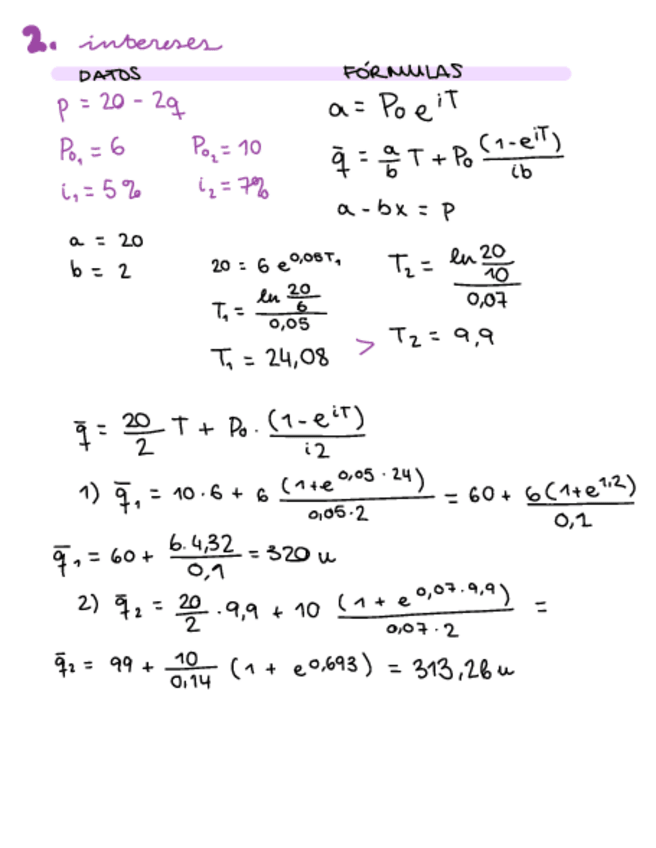 2. intereses
DATOS FÓRMULAS
p = 20 - 2q a = P₀ e^{iT}
P₀₁ = 6 P₀₂ = 10 q̄ = a/b T + P₀ (1-e^{iT})/ib
i₁ = 5% i₂ = 7%
a - bx = p
a = 20
b = 2
20 = 6 e^{0,05T₁} T₂ = ln 20/10 / 0,07
T₁ = ln 20/6 / 0,05
T₁ = 24,08 > T₂ = 9,9
q̄ = 20/2 T + P₀ · (1-e^{iT})/i2
1) q̄₁ = 10·6 + 6 (1+e^{0,05·24})/0,05·2 = 60 + 6(1+e^{1,2})/0,1
q̄₁ = 60 + 6·4,32/0,1 = 320 u
2) q̄₂ = 20/2 · 9,9 + 10 (1 + e^{0,07·9,9})/0,07·2 =
q̄₂ = 99 + 10/0,14 (1 + e^{0,693}) = 313,26 u